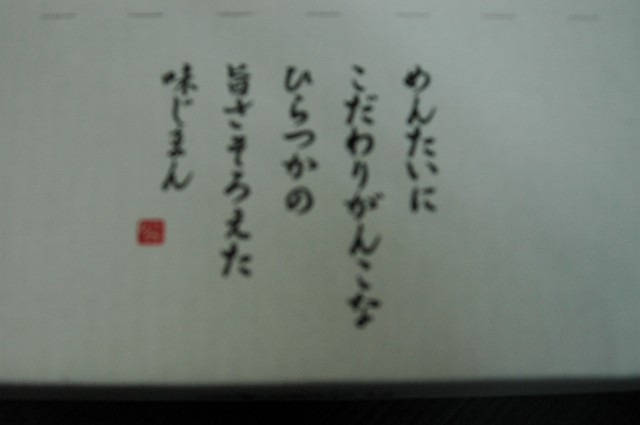 めんたいに
こだわりがんこな
ひらつかの
旨さそろえた
味じまん